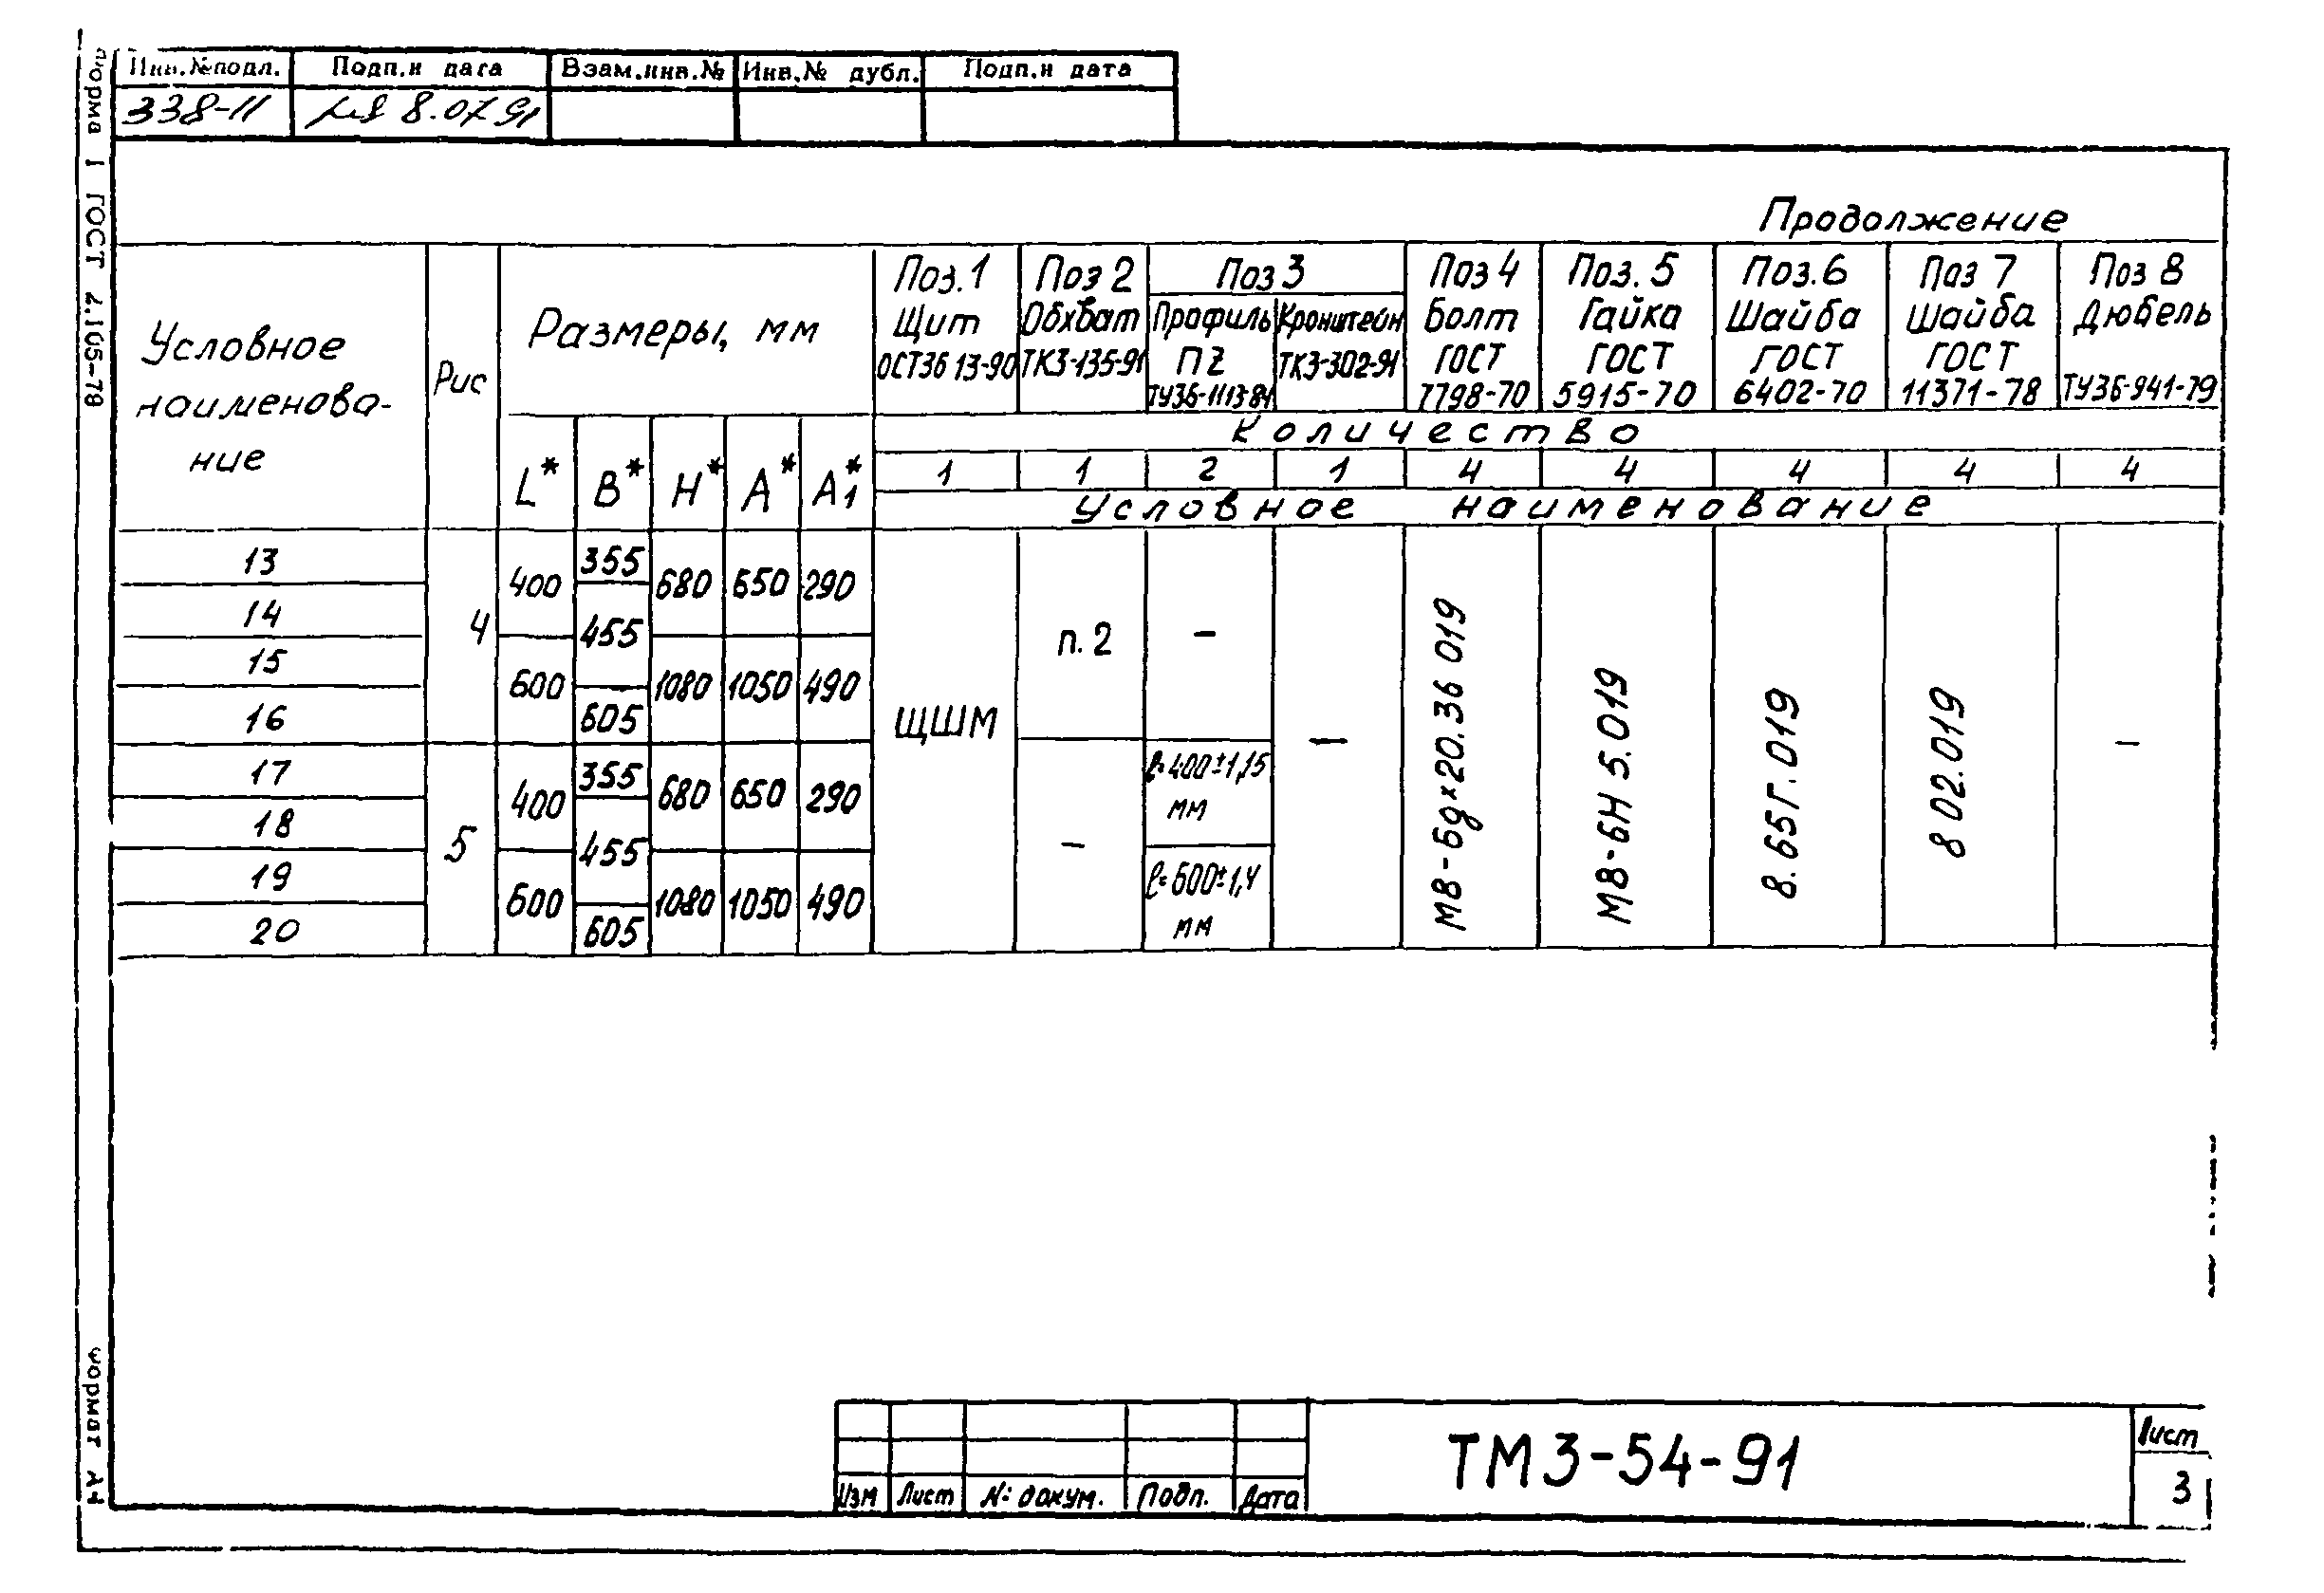 Инв.№подл. Подп.и дата Взам.инв.№ Инв.№ дубл. Подп.и дата
338-11 8.07.91
Форма 1 ГОСТ 2.105-78
Продолжение
Условное наименова-ние Рис Размеры, мм Поз.1 Поз 2 Поз 3 Поз 4 Поз.5 Поз.6 Поз 7 Поз 8
Щит Обхват Профиль Кронштейн Болт Гайка Шайба Шайба Дюбель
ОСТ36 13-90 ТК3-135-91 ПZ ТК3-302-91 ГОСТ ГОСТ ГОСТ ГОСТ
ТУ36-1113-84 7798-70 5915-70 6402-70 11371-78 ТУ36-941-79
Количество
L* B* H* A* A1* 1 1 2 1 4 4 4 4 4
Условное наименование
13 4 400 355 680 650 290 ЩШМ п.2 – — М8-6g×20.36 019 М8-6Н 5.019 8.65Г.019 8 02.019 –
14 455
15 600 1080 1050 490
16 605
17 5 400 355 680 650 290 – ℓ=400±1,15 мм
18 455
19 600 1080 1050 490 ℓ=600±1,4 мм
20 605
Формат А4
Изм Лист №: докум. Подп. Дата
ТМ3-54-91
Лист
3